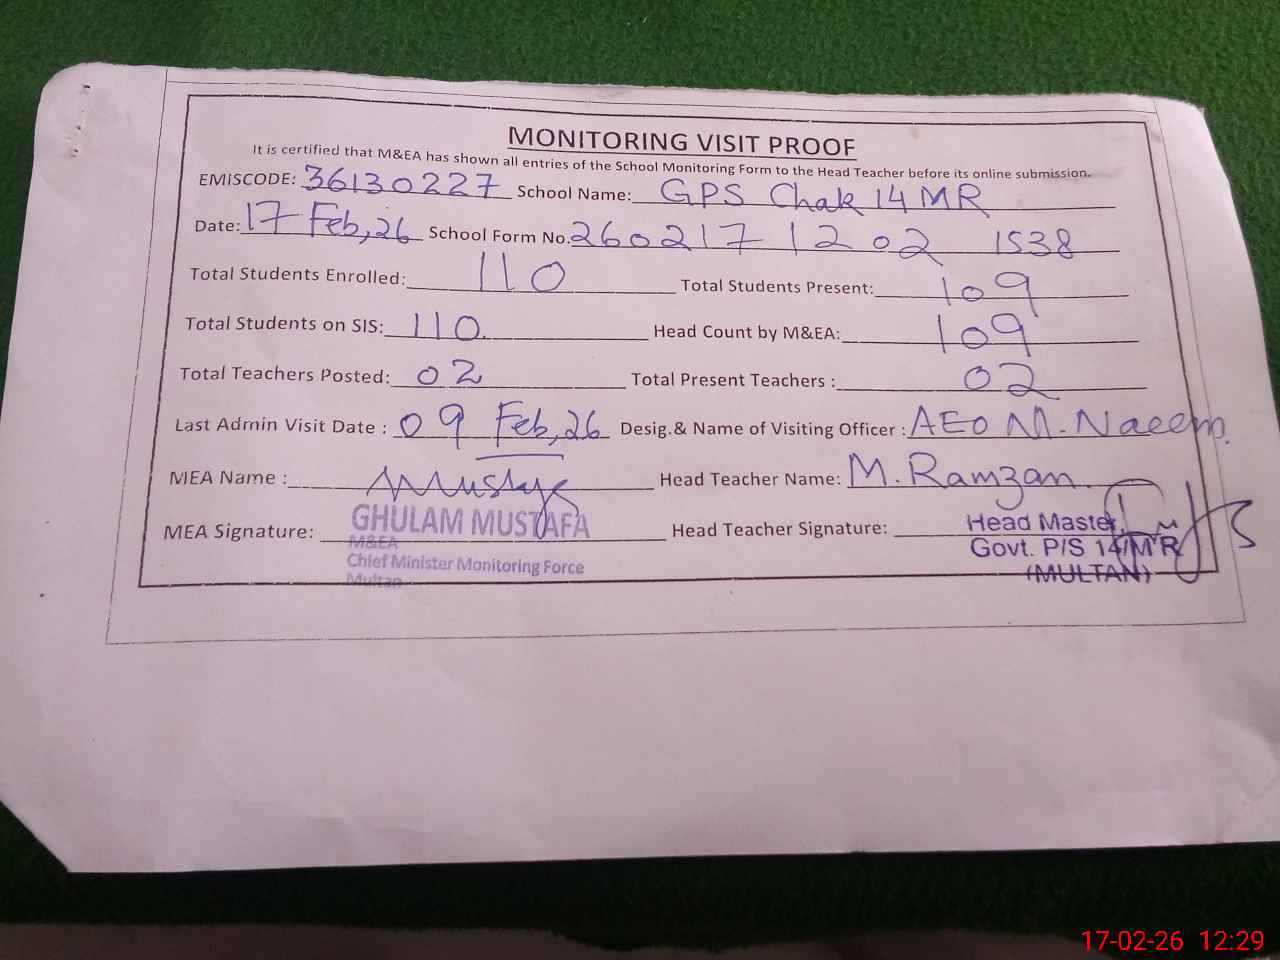 MONITORING VISIT PROOF
It is certified that M&EA has shown all entries of the School Monitoring Form to the Head Teacher before its online submission.
EMISCODE: 36130227 School Name: GPS Chak 14 MR
Date: 17 Feb, 26 School Form No. 260217 1202 1538
Total Students Enrolled: 110 Total Students Present: 109
Total Students on SIS: 110. Head Count by M&EA: 109
Total Teachers Posted: 02 Total Present Teachers : 02
Last Admin Visit Date : 09 Feb, 26 Desig.& Name of Visiting Officer : AEO M. Naeem.
MEA Name : Head Teacher Name: M. Ramzan
MEA Signature: GHULAM MUSTAFA Head Teacher Signature: Head Master
M&EA Govt. P/S 14/M R
Chief Minister Monitoring Force (MULTAN)
Multan
17-02-26 12:29